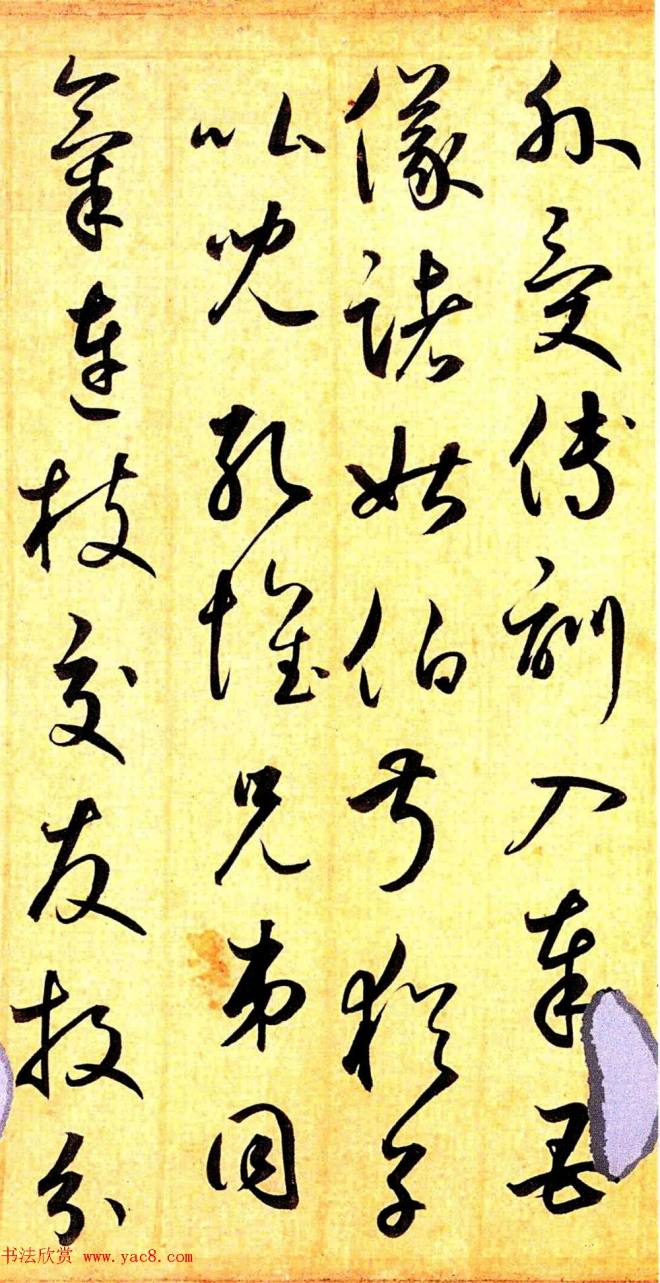 外受傅訓入奉母
儀諸姑伯叔猶子
比兒孔懷兄弟同
氣連枝交友投分
书法欣赏 www.yac8.com